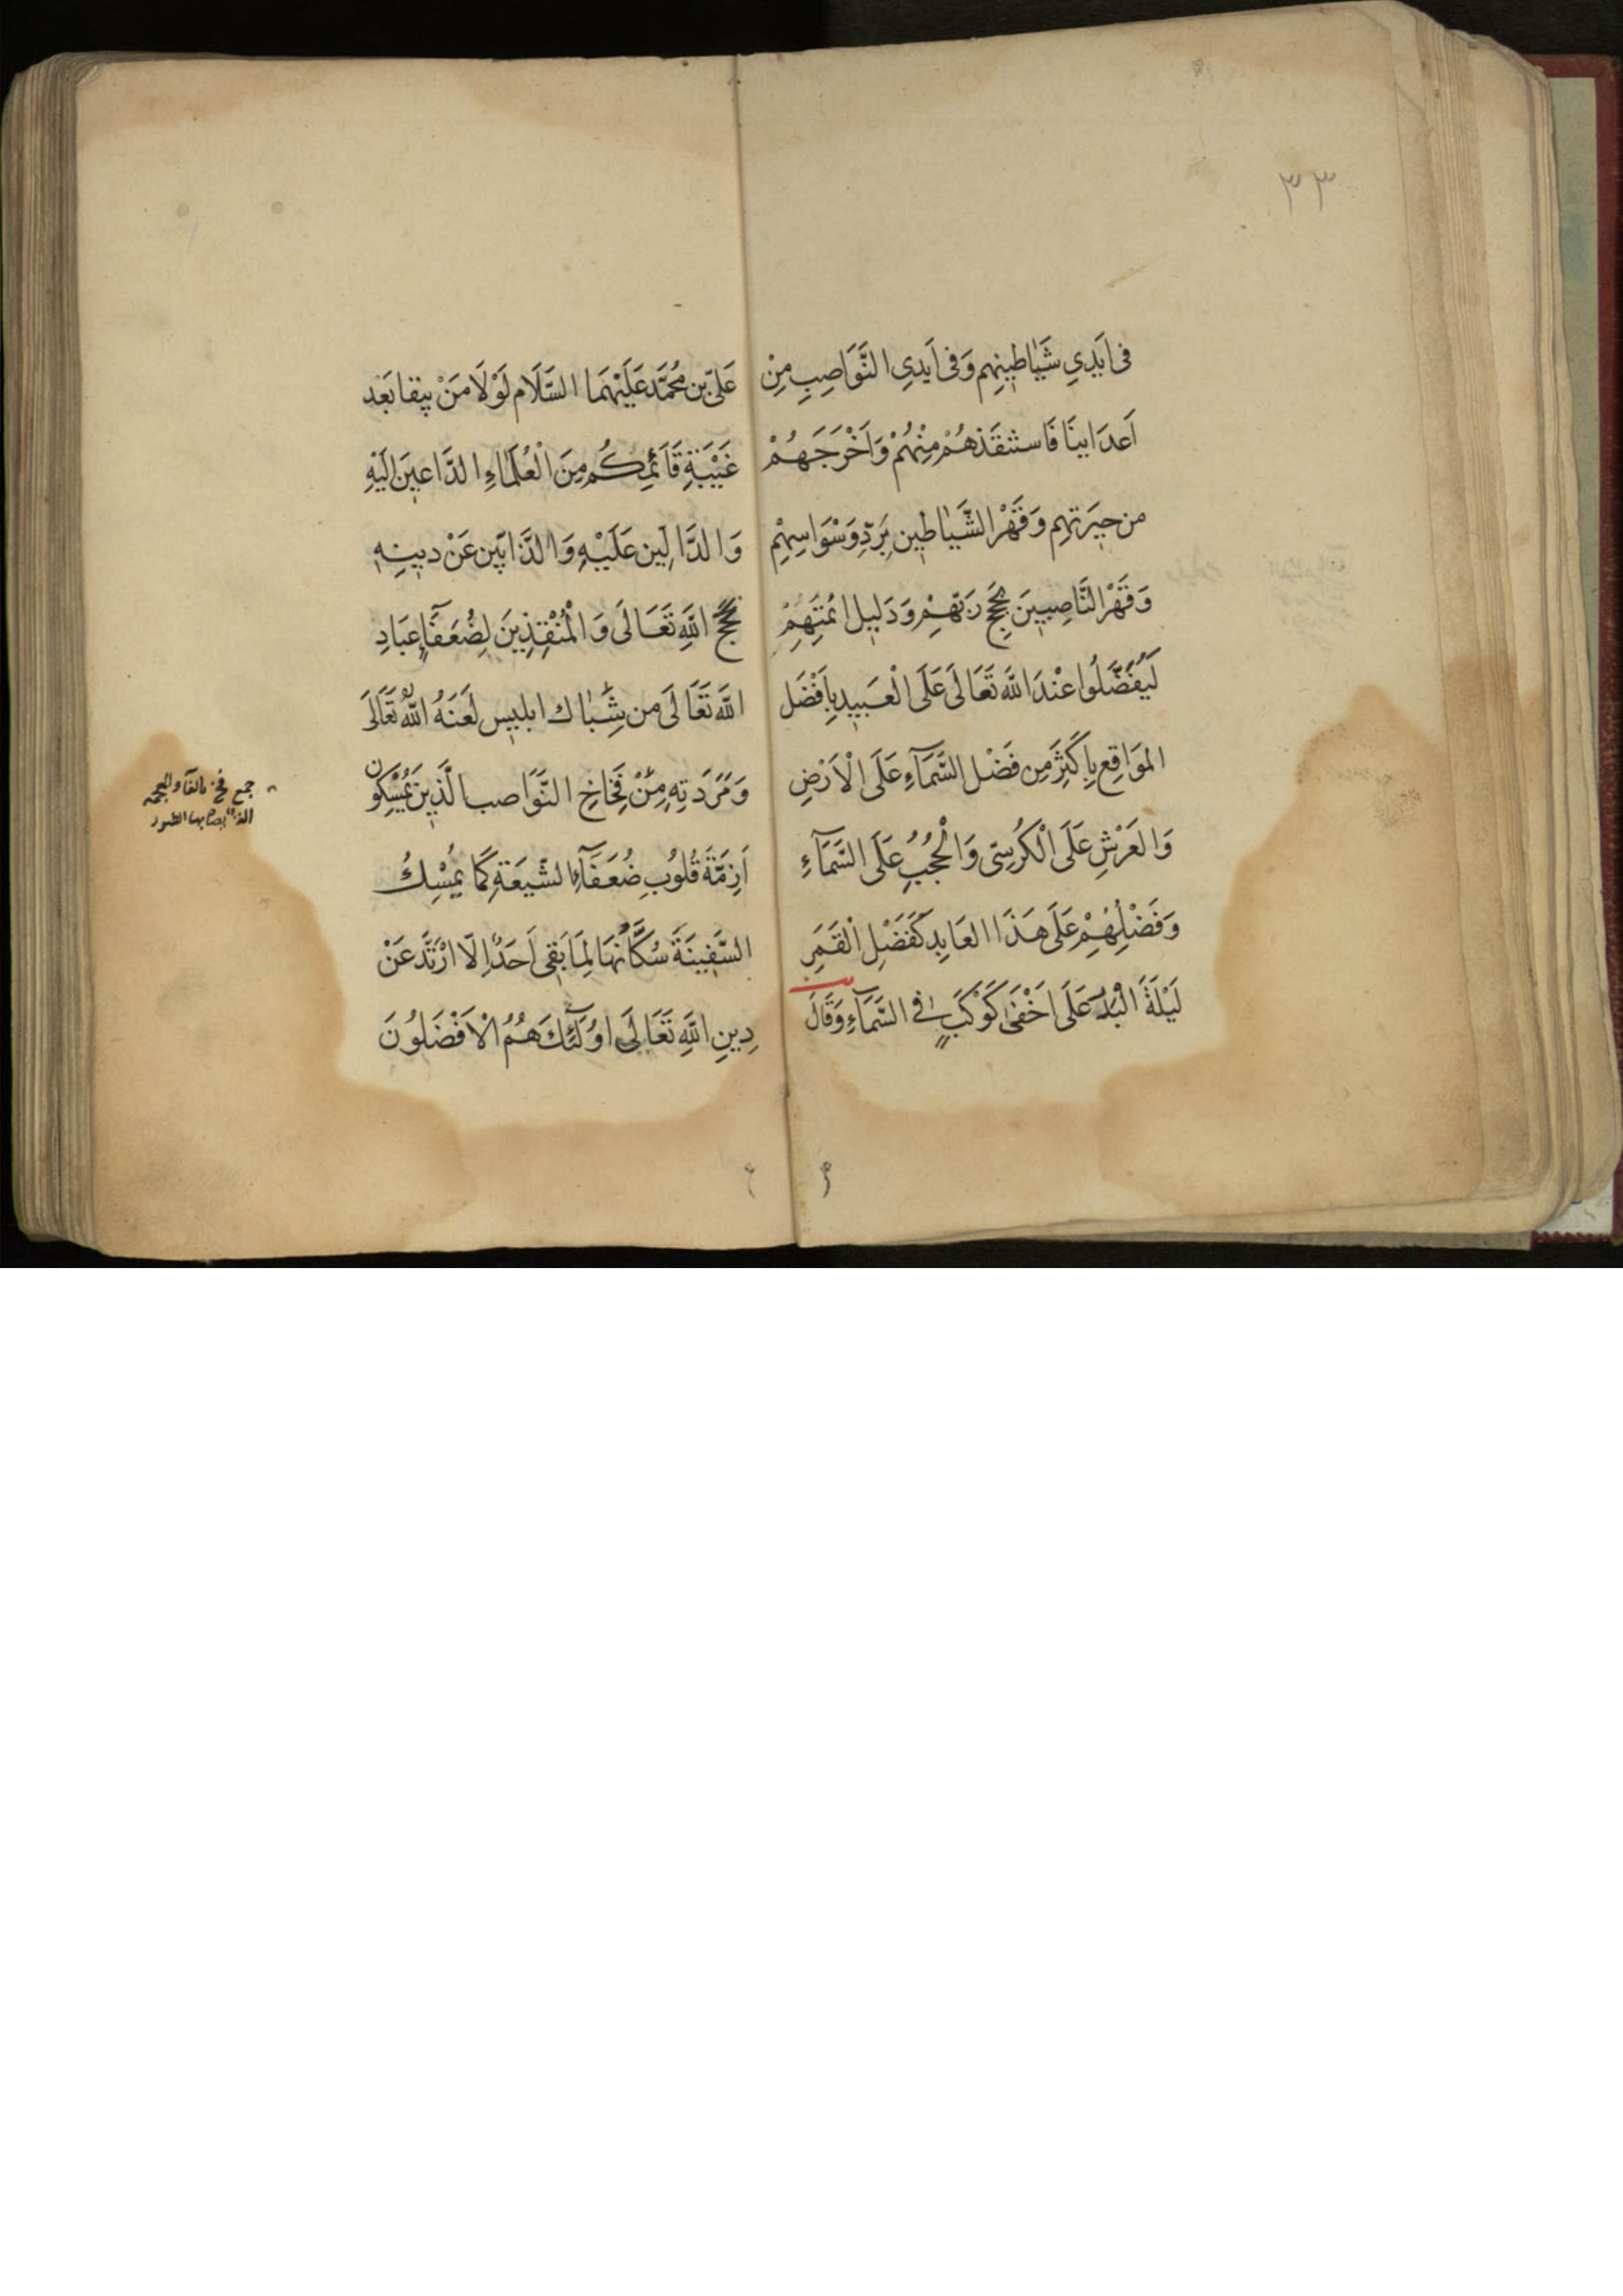 ٣٣
فى اَيَدِي شَيَاطِينِهِم وَفى اَيدِى النَّوَاصِبِ مِنْ
اَعدَاينَا فَاستَنقَذهُمْ مِنْهُمْ وَاَخْرَجَهُمْ
من حِيَرتهِم وَقَهْرِ الشَّيَاطِين بِرَدِّ وَسْوَاسِهِمْ
وَقَهْرِ النَّاصِبِينَ بِحُجَجِ رَبّهِم وَدَلِيل ائمتِهِمْ
لَيُفَضَّلُوا عنْدَ اللَّه تَعَالَى عَلَى الْعَبِيدِ بِاَفْضَل
المَوَاقِع بِاَكثَرَ مِن فَضْل السَّمَآءِ عَلَى الْاَرْضِ
وَالعَرْشِ عَلَى الْكُرسِىّ وَالْحُجُبِ عَلَى السَّمَآءِ
وَفَضْلُهُمْ عَلَى هَذَا العَابِدِ كَفَضْلِ الْقَمَرِ
لَيْلَةَ الْبَدْر عَلَى اَخْفَى كَوْكَبٍ فى السَّمَآءِ وَقَالَ
عَلىّ بن مُحمَّد عَلَيْهمَا السَّلَام لَوْلَا مَنْ يبقا بَعْد
غَيْبَةِ قَائمِكُم مِنَ الْعُلَمَاءِ الدَّاعِينَ اِلَيْهِ
وَالدَّالِين عَلَيْهِ وَالذَّابّين عَنْ دينِه
بحُجَجِ اللَّهِ تَعَالَى وَالْمُنْقِذِينَ لِضُعَفَاءِ عِبَادِ
اللَّه تَعَالَى من شِبَاك ابليس لَعَنَهُ اللَّهُ تَعَالَى
وَمَرَدَتِهِ وَمِنْ فِخَاخِ النَّوَاصب الَّذِينَ يُمْسِكُون
اَزِمَّةَ قُلُوبِ ضُعَفَآءِ الشّيعَةِ كَمَا يُمْسِكُ
السَّفِينَةَ سُكَّانُهَا لمَا بَقِى اَحَدٌ اِلَّا ارْتَدَّ عَنْ
دِينِ اللَّهِ تَعَالَى اوُلَئِكَ هُمُ الْاَفْضَلُونَ
جمع فخ بالفاء والمعجمة